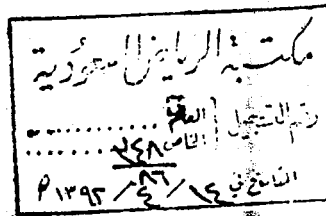 مكتبة الرياض السعودية
رقم التسجيل العام ........
الخاص ٢٤٨ ........
٨٦
التاريخ في ١٤ / ٤ / ١٣٩٢ م